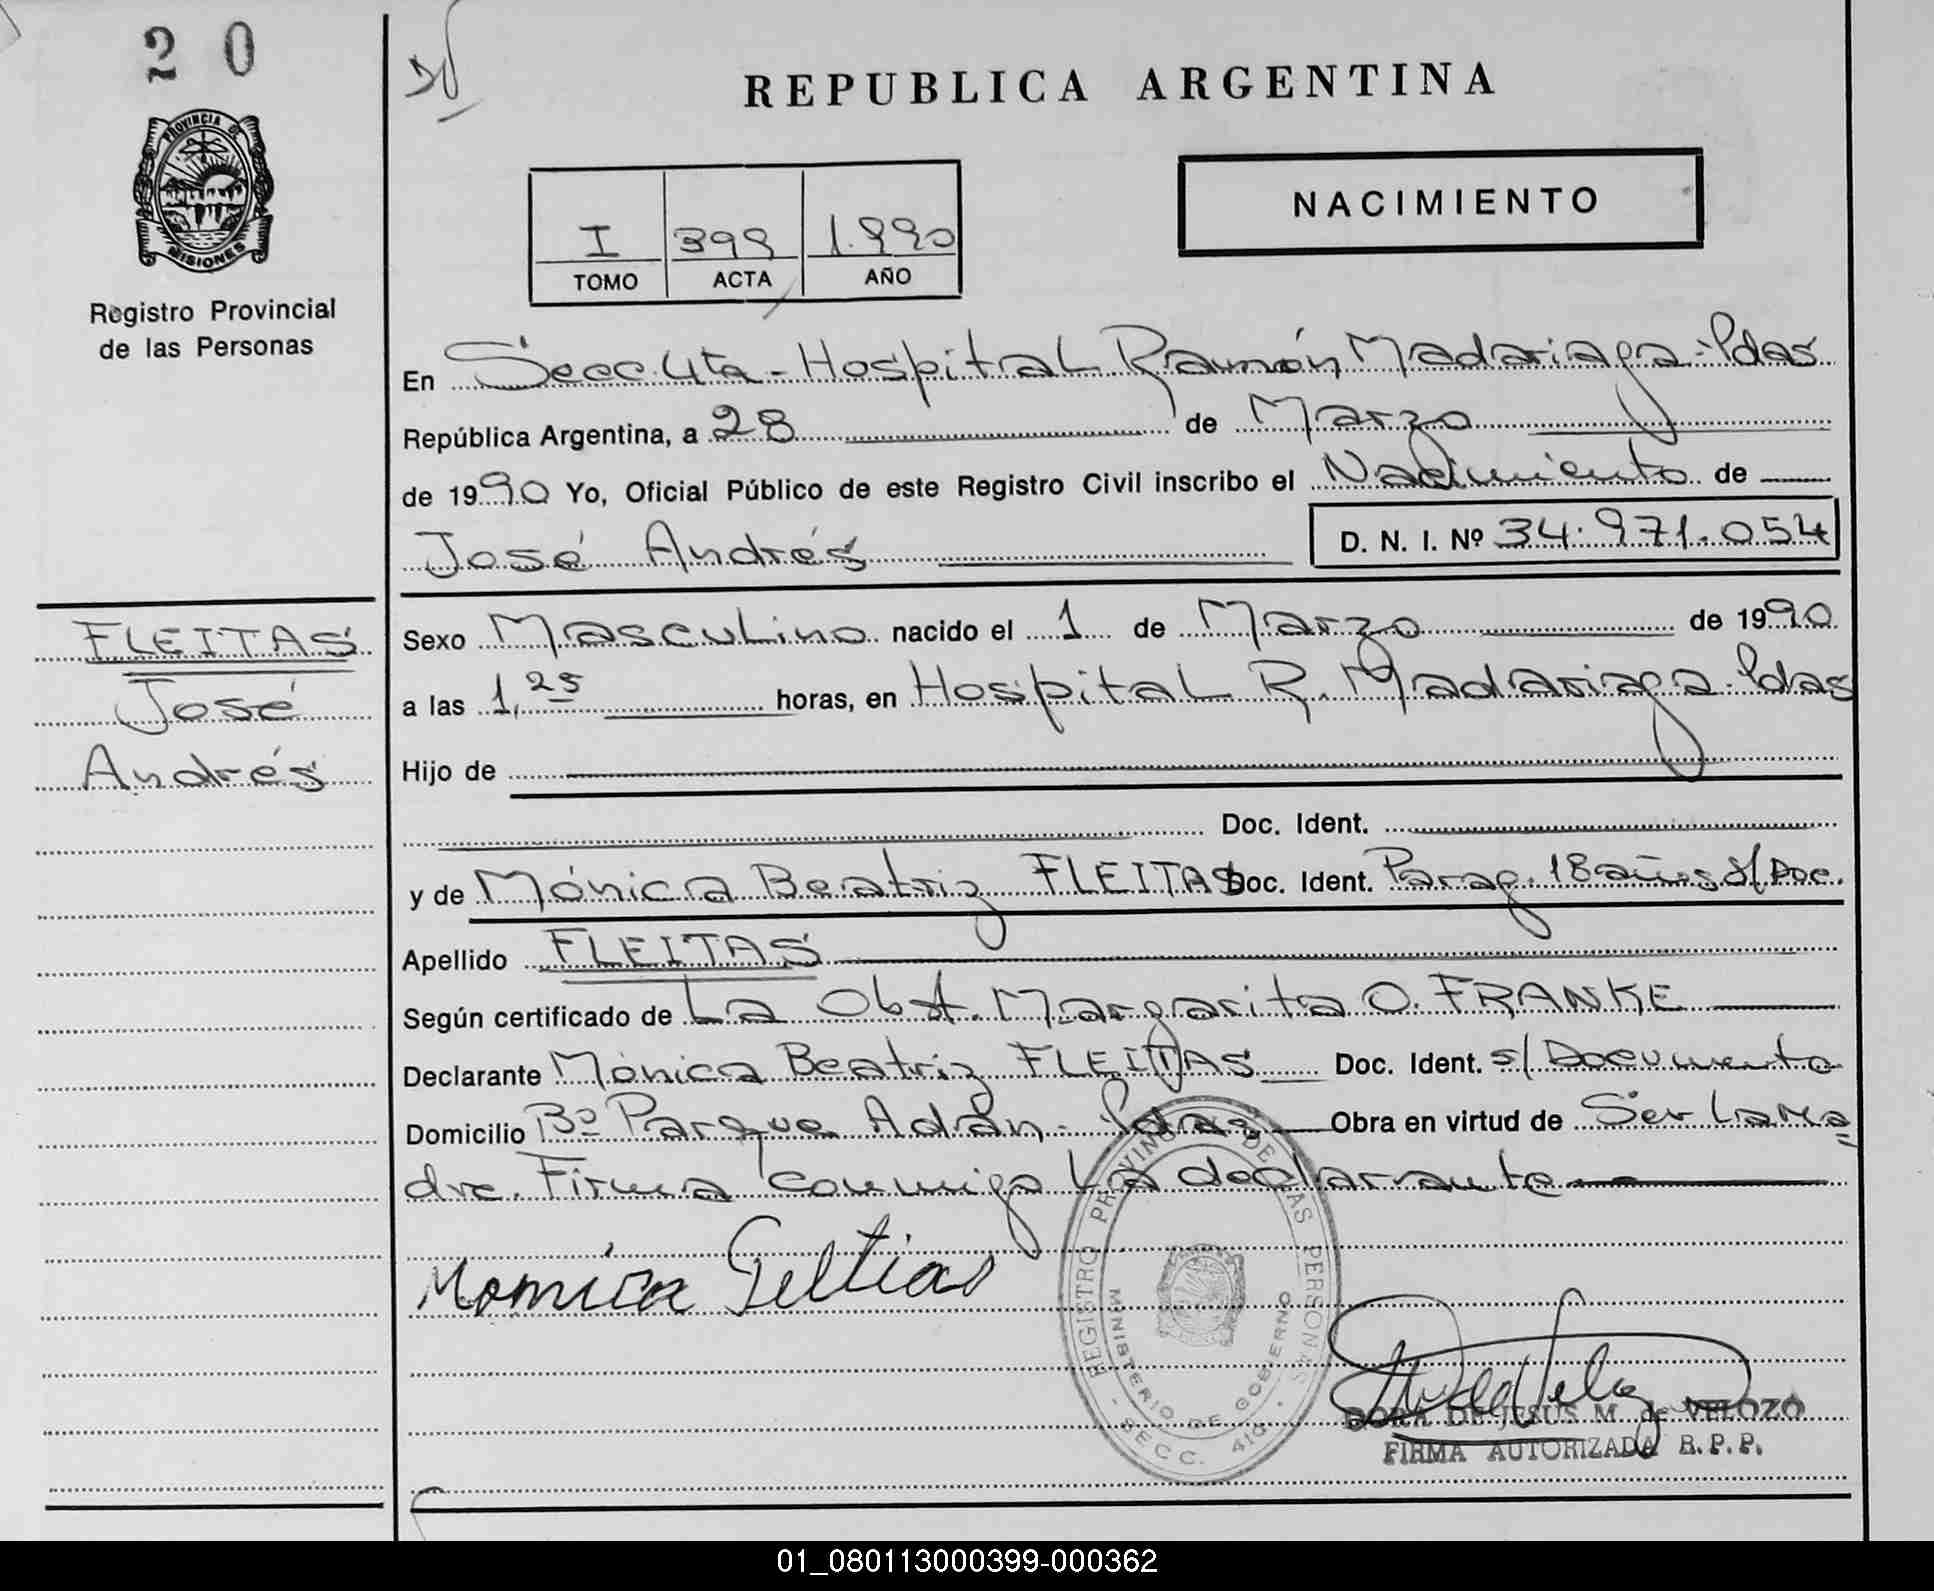 2 0
PROVINCIA DE
MISIONES
Registro Provincial
de las Personas
REPUBLICA ARGENTINA
NACIMIENTO
I 399 1.990
TOMO ACTA AÑO
En Secc. 4ta - Hospital Ramón Madariaga - Pdas
República Argentina, a 28 de Marzo
de 1990 Yo, Oficial Público de este Registro Civil inscribo el Nacimiento de
José Andrés D. N. I. Nº 34.971.054
FLEITAS
José
Andrés
Sexo Masculino nacido el 1 de Marzo de 1990
a las 1,25 horas, en Hospital R. Madariaga - Pdas
Hijo de
Doc. Ident.
y de Mónica Beatriz FLEITAS Doc. Ident. Parag. 18 años s/Doc.
Apellido FLEITAS
Según certificado de La Obst. Margarita O. FRANKE
Declarante Mónica Beatriz FLEITAS Doc. Ident. s/Documento
Domicilio Bº Parque Adán - Pdas. Obra en virtud de Ser La Ma
dre. Firma conmigo La declarante
Momica
REGISTRO PROVINC. DE LAS PERSONAS
MINISTERIO DE GOBIERNO
- SECC. 4ta. -
DORA DE JESUS M. de VELOZO
FIRMA AUTORIZADA R. P. P.
01_080113000399-000362